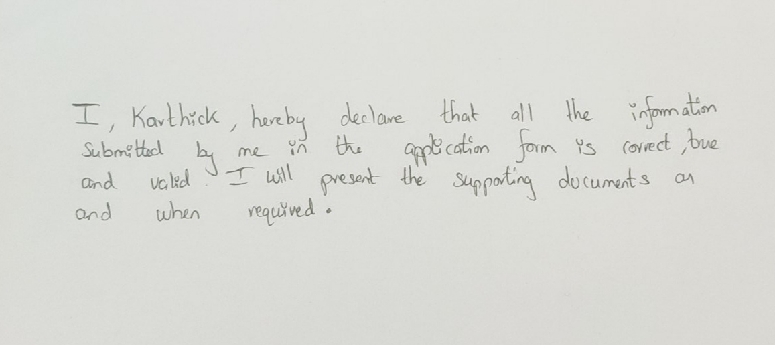 I, Karthick, hereby declare that all the information
Submitted by me in the application form is correct, true
and valid. I will present the supporting documents as
and when required.